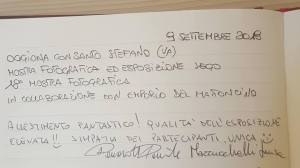 9 SETTEMBRE 2018
OGGIONA CON SANTO STEFANO (VA)
MOSTRA FOTOGRAFICA ED ESPOSIZIONE LEGO
18ª MOSTRA FOTOGRAFICA
IN COLLABORAZIONE CON EMPORIO DEL MATTONCINO
ALLESTIMENTO FANTASTICO! QUALITA' DELL'ESPOSIZIONE
ELEVATA!! SIMPATIA DEI PARTECIPANTI, UNICA